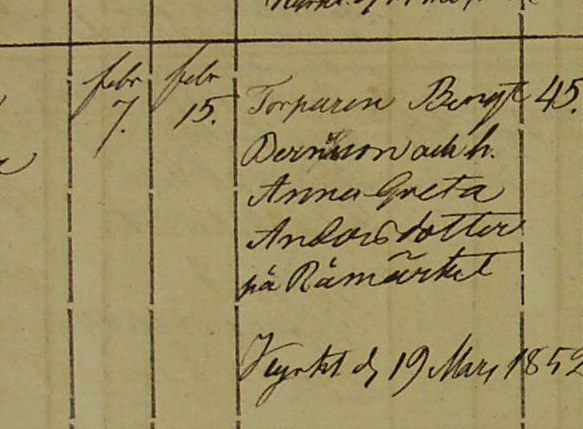 febr febr Torparen Bengt 45.
7. 15.
och h.
Anna Greta
Andersdotter
på Råmärket
Kyrkt d 19 Mars 1852